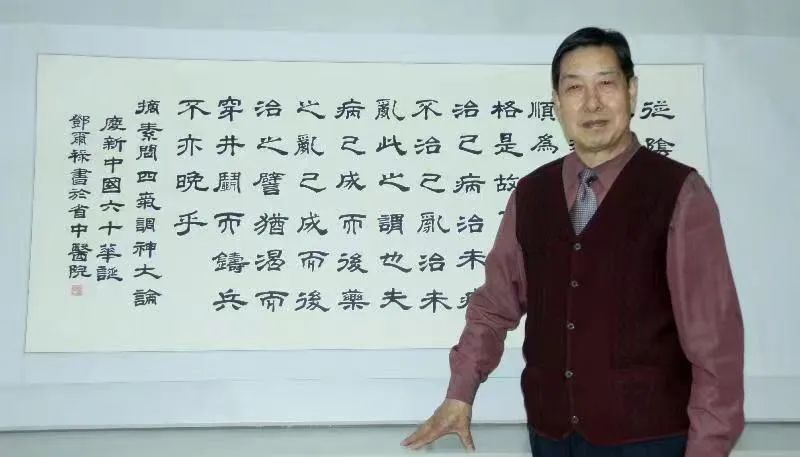 從陰
順為
格是故
治已病治未病
不治已亂治未
亂此之謂也夫
病已成而後藥
之亂已成而後
治之譬猶渴而
穿井鬭而鑄兵
不亦晚乎
摘素問四氣調神大論
慶新中國六十華誕
鄧爾祿書於省中醫院